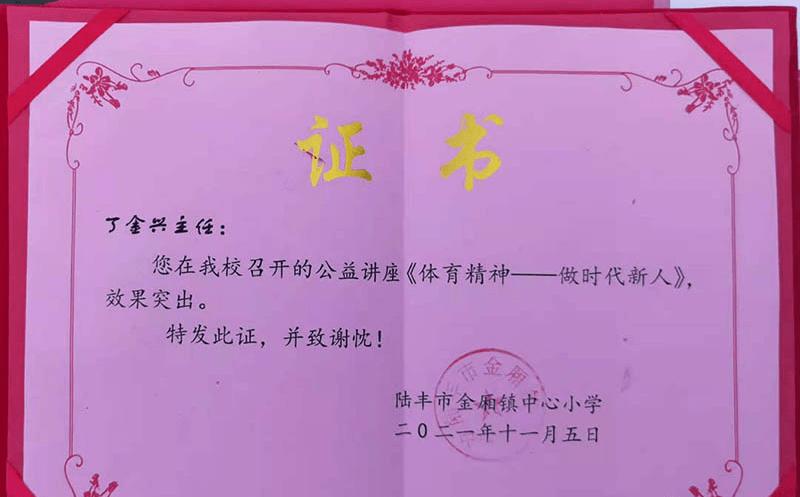 证书
了金兴主任：
您在我校召开的公益讲座《体育精神——做时代新人》，
效果突出。
特发此证，并致谢忱！
陆丰市金厢镇中心小学
二〇二一年十一月五日